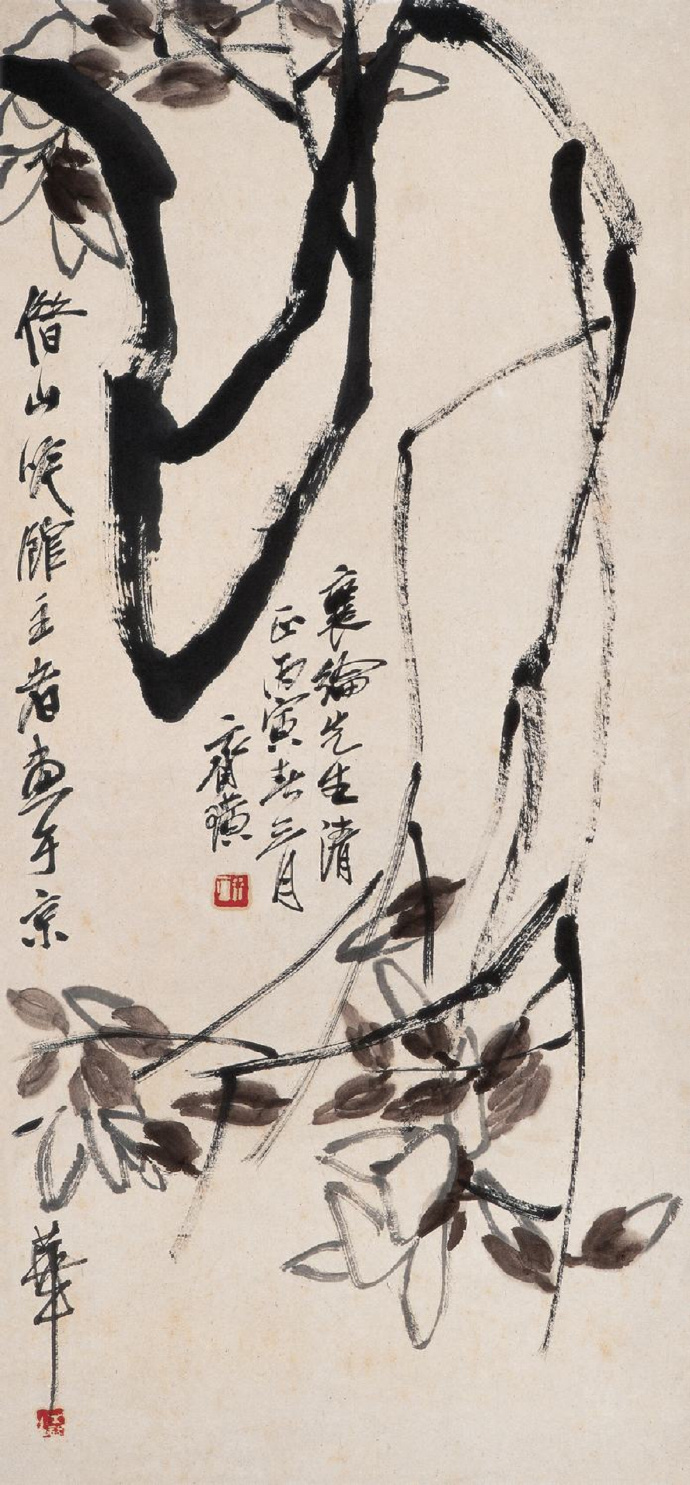 襄綸先生清
正丙寅春三月
齊璜
借山吟館主者畫于京華